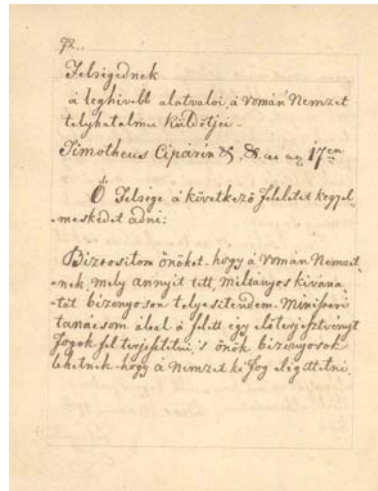 Felségednek
a leghivebb alatvalói, a román Nemzet
telyhatalmu Küldötjei
Timotheus Cipáriu &, &. az 17en
Ő Felsége a következö feleletet kegyel-
-meskedet adni:
Bizeositom önöket. hogy a román Nemzet-
-nek, mely annyit titt, miltányos kiváná
-tát bizonyoson telyesitendem. Ministeri
tanácsom által a felett egy elöterjesztvényt
fogok fel terjesztetni, 's önök bizonyosok
lehetnek hogy a Nemzet ki fog eligittetni,